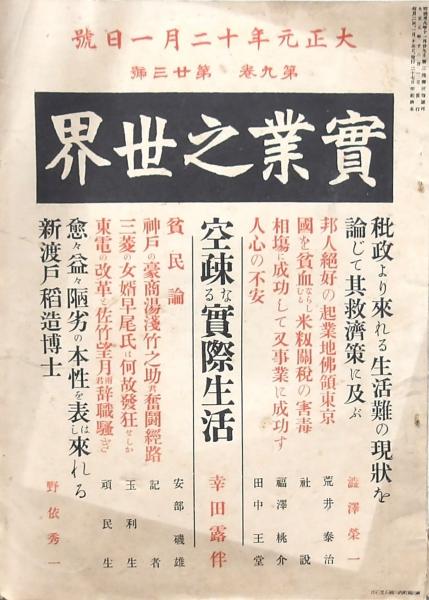 大正元年十二月一日號
第九巻 第廿三號
實業之世界
秕政より來れる生活難の現狀を
論じて其救濟策に及ぶ
澁澤榮一
邦人絕好の起業地佛領東京
荒井泰治
國を貧血ならしむる米籾關稅の害毒
社說
相塲に成功して又事業に成功す
福澤桃介
人心の不安
田中王堂
空疎なる實際生活
幸田露伴
貧民論
安部磯雄
神戶の豪商湯淺竹之助君奮鬪經路
記者
三菱の女婿早尾氏は何故發狂せしか
玉利生
東電の改革と佐竹望月兩君辭職騷ぎ
頑民生
愈々益々陋劣の本性を表はし來れる
新渡戶稻造博士
野依秀一